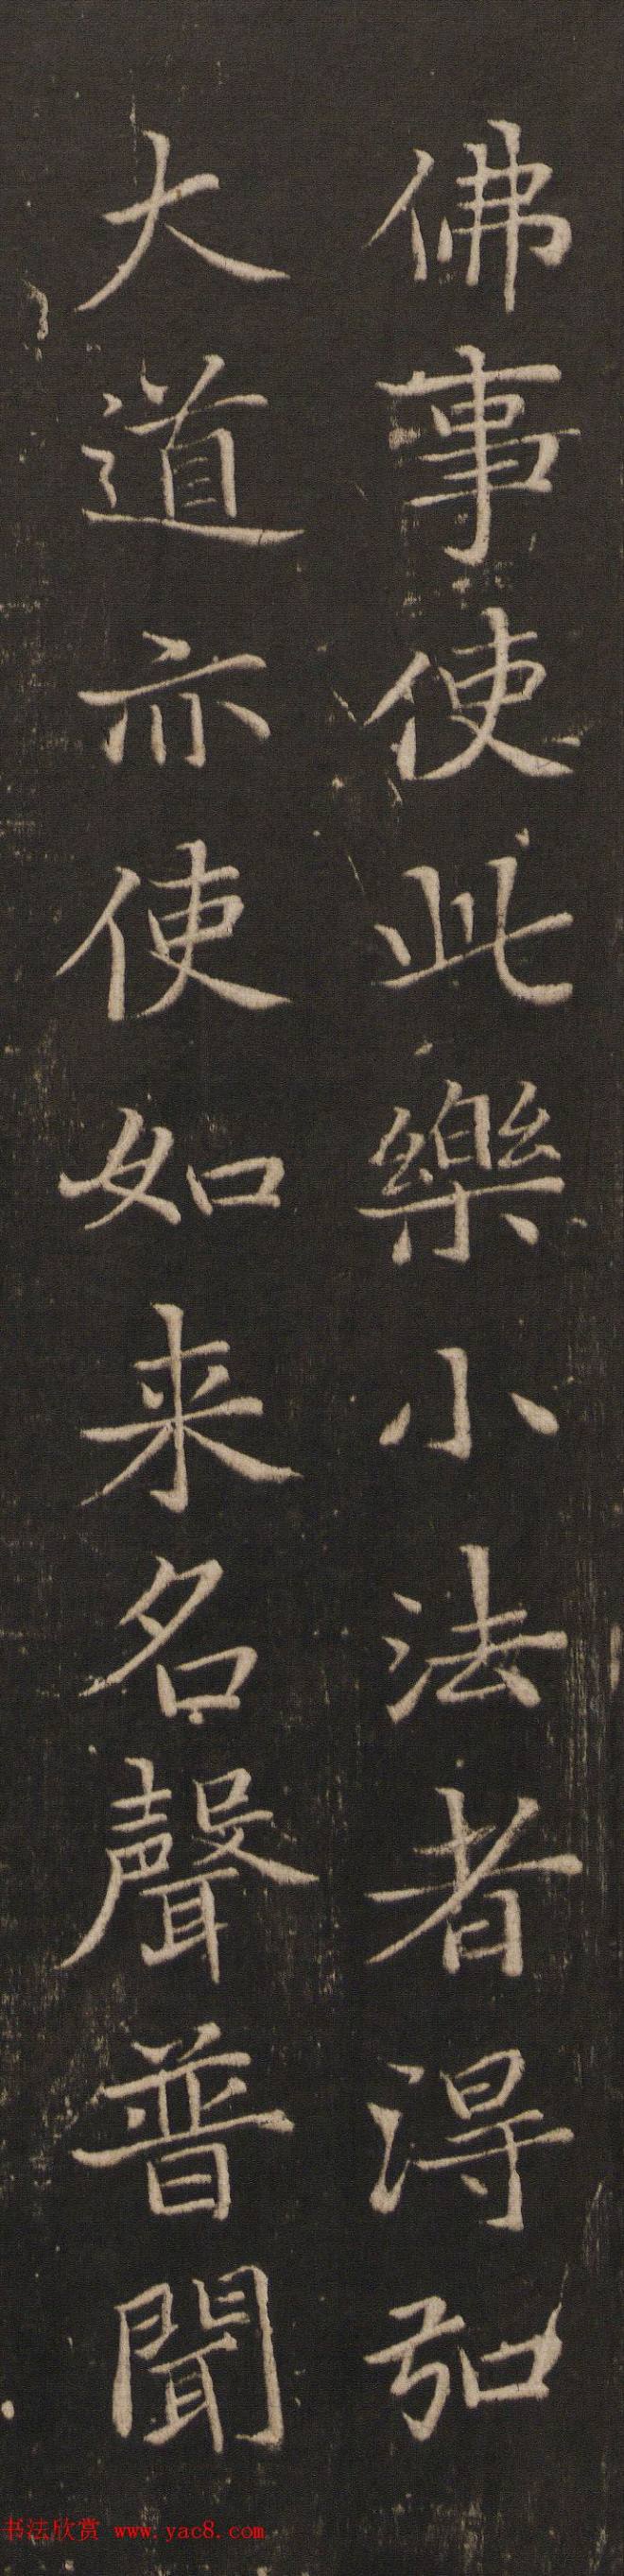 佛事使此樂小法者淂弘
大道亦使如来名聲普聞
书法欣赏 www.yac8.com